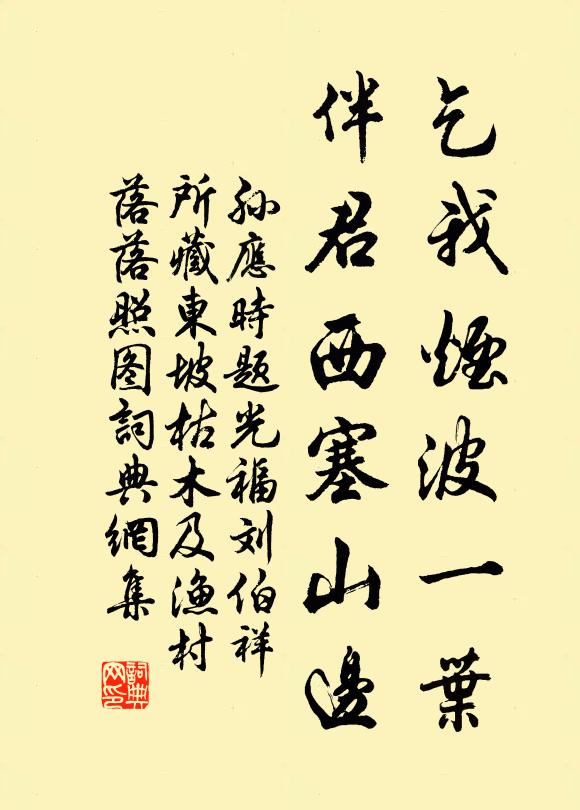 乞我煙波一葉
伴君西塞山邊
孙應時題光福刘伯祥
所藏東坡枯木及漁村
落落照图詞典網集
詞典網印